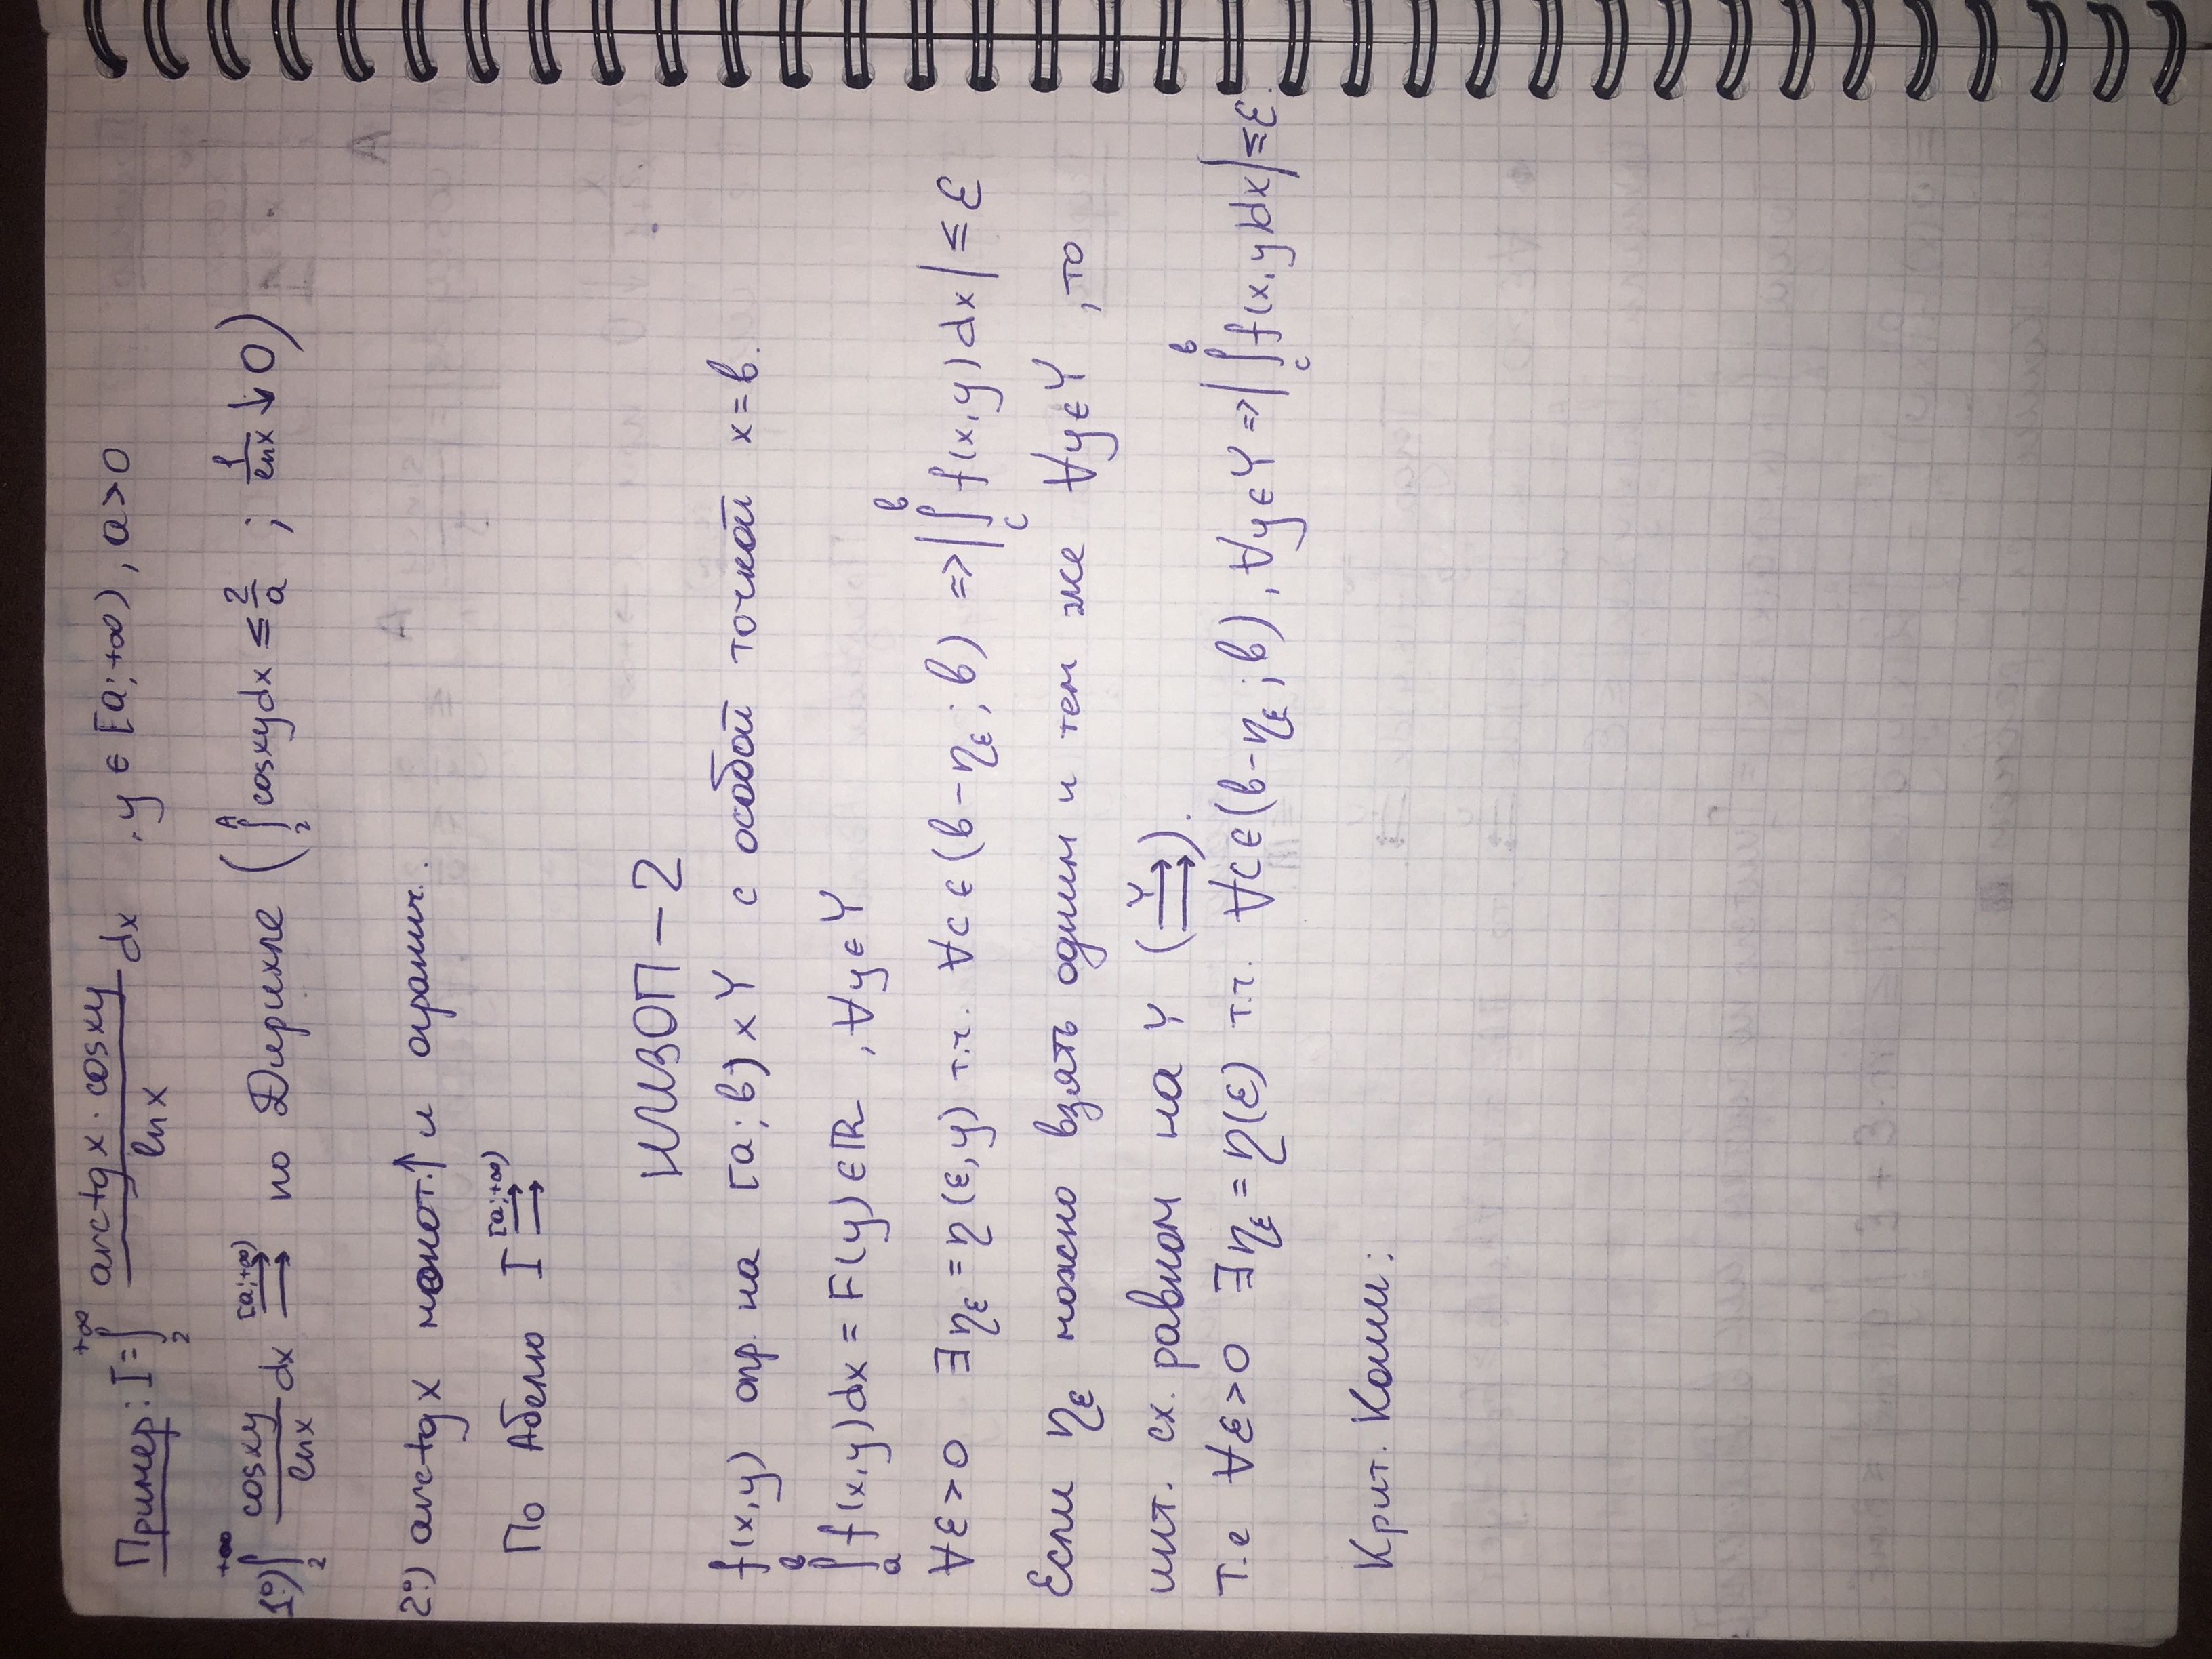 Пример: I = ∫₂^{+∞} (arctg x · cos xy)/(ln x) dx , y ∈ [a; +∞), a > 0
1°.) ∫₂^{+∞} (cos xy)/(ln x) dx ⇉^{[a;+∞)} по Дирихле ( ∫₂^A cos xy dx ≤ 2/a ; 1/(ln x) ↓ 0 )
2°.) arctg x монот. ↑ и огранич..
По Абелю I ⇉^{[a;+∞)}
НИЗОП – 2
f(x,y) опр. на [a; b) x Y с особой точкой x = b.
∫ₐ^b f(x,y) dx = F(y) ∈ ℝ , ∀y ∈ Y
∀ε > 0 ∃η_ε = η(ε,y) т.ч. ∀c ∈ (b – η_ε ; b) => |∫_c^b f(x,y) dx| ≤ ε
Если η_ε можно взять одним и тем же ∀y ∈ Y , то
инт. сх. равном на Y (⇉^Y).
Т.е ∀ε > 0 ∃η_ε = η(ε) т.ч. ∀c ∈ (b – η_ε ; b) , ∀y ∈ Y => |∫_c^b f(x,y) dx| ≤ ε.
Крит. Коши: